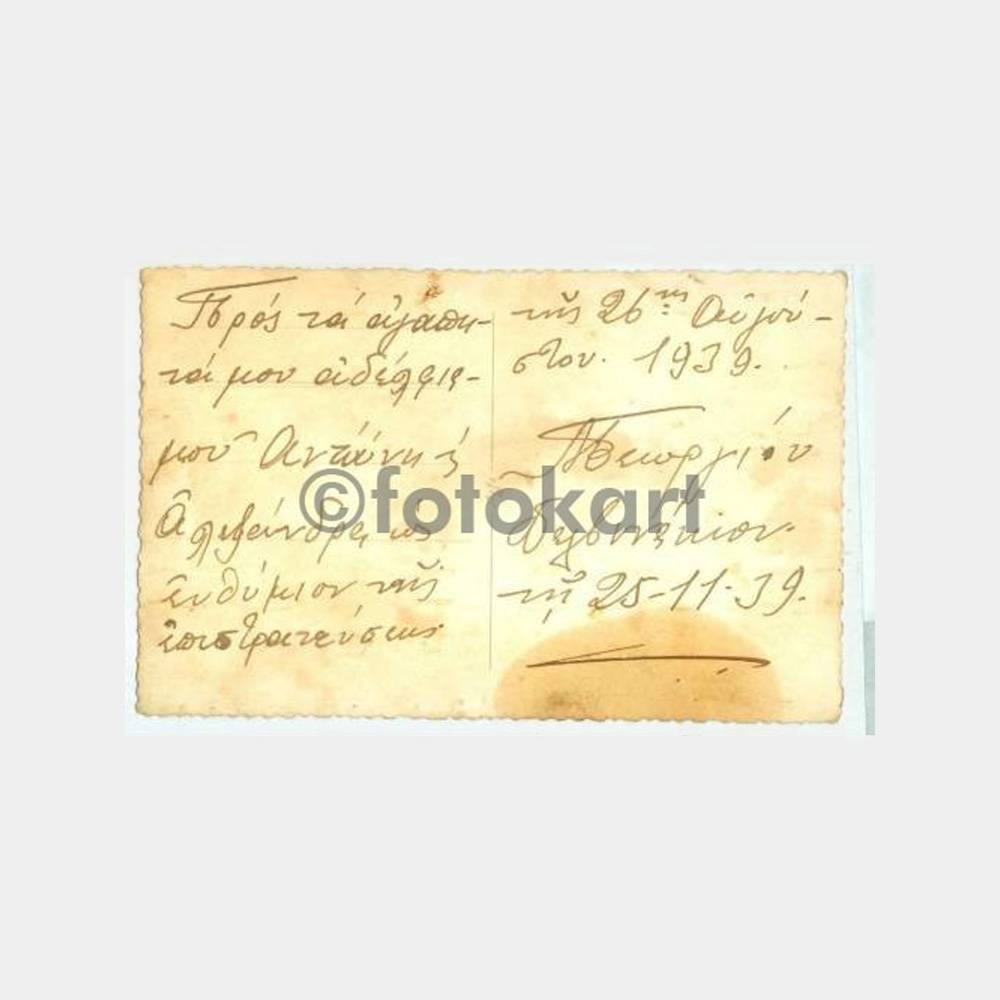 Πρός τά ἀγαπη-
τά μου ἀδέλφια-
μου Ἀντώνη ς
Ἀλεξάνδρα ὡς
ἐνθύμιον τῆς
ἐπιστρατεύσεως
τῆς 26ης Αὐγού-
στου. 1939.
Γεωργίου
τῇ 25-11-39.
©fotokart